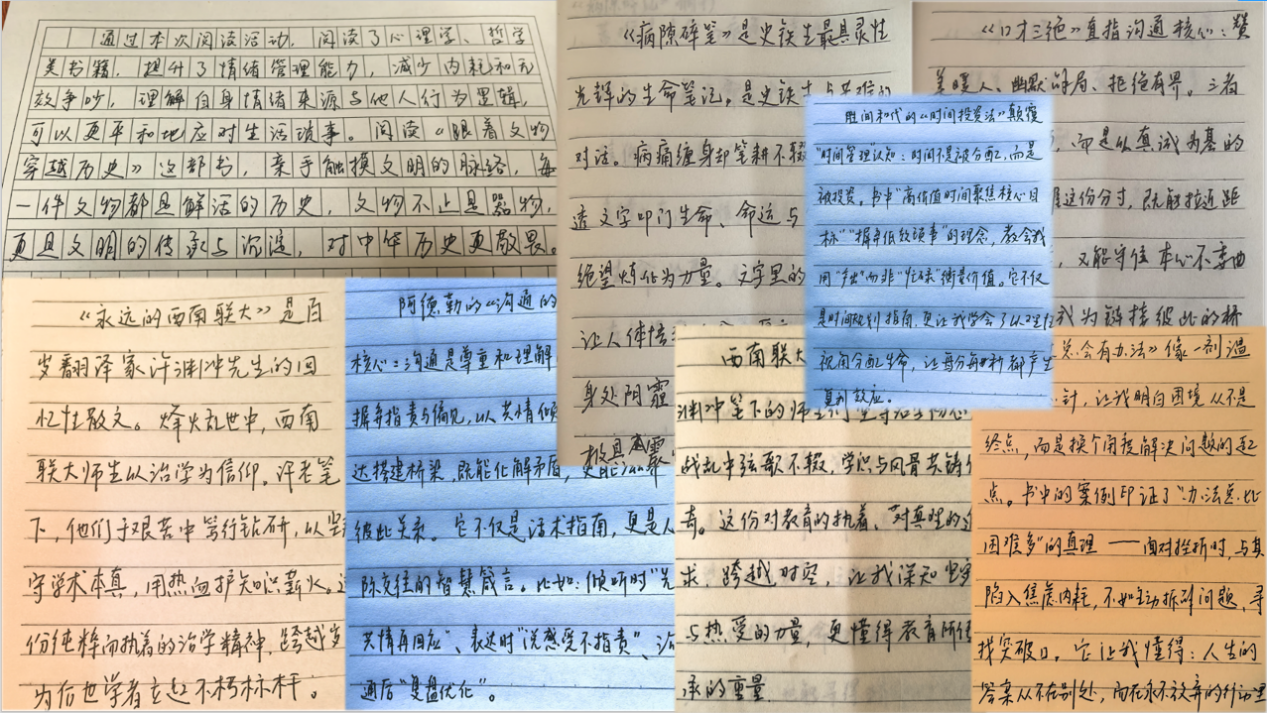 通过本次阅读活动，阅读了心理学、哲学
类书籍，提升了情绪管理能力，减少内耗和无
效争吵，理解自身情绪来源与他人行为逻辑，
可以更平和地应对生活琐事。阅读《跟着文物
穿越历史》这部书，亲手触摸文明的脉络，每
一件文物都是鲜活的历史，文物不止是器物，
更是文明的传承与沉淀，对中华历史更敬畏。
《病隙碎笔》是史铁生最具灵性
光辉的生命笔记。是史铁生与苦难的
对话。病痛缠身却笔耕不辍
透文字叩门生命、命运与
绝望炼化为力量。文字里的
让人体悟
身处阴霾
极具
《口才三绝》直指沟通核心：赞
美暖人、幽默
局、拒绝有界。三者
，而是以真诚为基的
这份分寸，既能拉近距
，又能守住本心不委曲
成为链接彼此的桥
时间和代的《时间投资法》颠覆
“时间管理”认知：时间不是被分配，而是
被投资。书中“高价值时间聚焦核心目
标”“摒弃低效琐事”的理念，教会我
用“产出”而非“忙碌”衡量价值。它不仅
是时间规划指南，更让我学会了以
视角分配生命，让每分每秒都产生
复利效应。
《永远的西南联大》是百
岁翻译家许渊冲先生的回
忆性散文。烽火乱世中，西南
联大师生以治学为信仰。许老笔
下，他们于艰苦中笃行钻研，以坚
守学术本真，用热血护知识薪火。这
份纯粹而执着的治学精神，跨越岁
为后世学者立起不朽标杆。
阿德勒的《沟通的
核心：沟通是尊重和理解
摒弃指责与偏见，以共情倾
达搭建桥梁，既能化解矛盾，更能
彼此关系。它不仅是话术指南，更是人
际交往的智慧箴言。比如：倾听时“先
共情再回应”、表达时“说感受不指责”、沟
通后“复盘优化”。
西南联大
渊冲笔下的师生们坚守
战乱中弦歌不辍，学识与风骨共铸
奇。这份对教育的执着、对真理的追
求，跨越时空，让我深知坚守
与热爱的力量，更懂得教育所传
承的重量
总会有办法》像一剂温
针，让我明白困境从不是
终点，而是换个角度解决问题的起
点。书中的案例印证了“办法总比
困难多”的真理——面对挫折时，与其
陷入焦虑内耗，不如主动拆解问题，寻
找突破口。它让我懂得：人生的
答案从不在别处，而在永不放弃的行动里